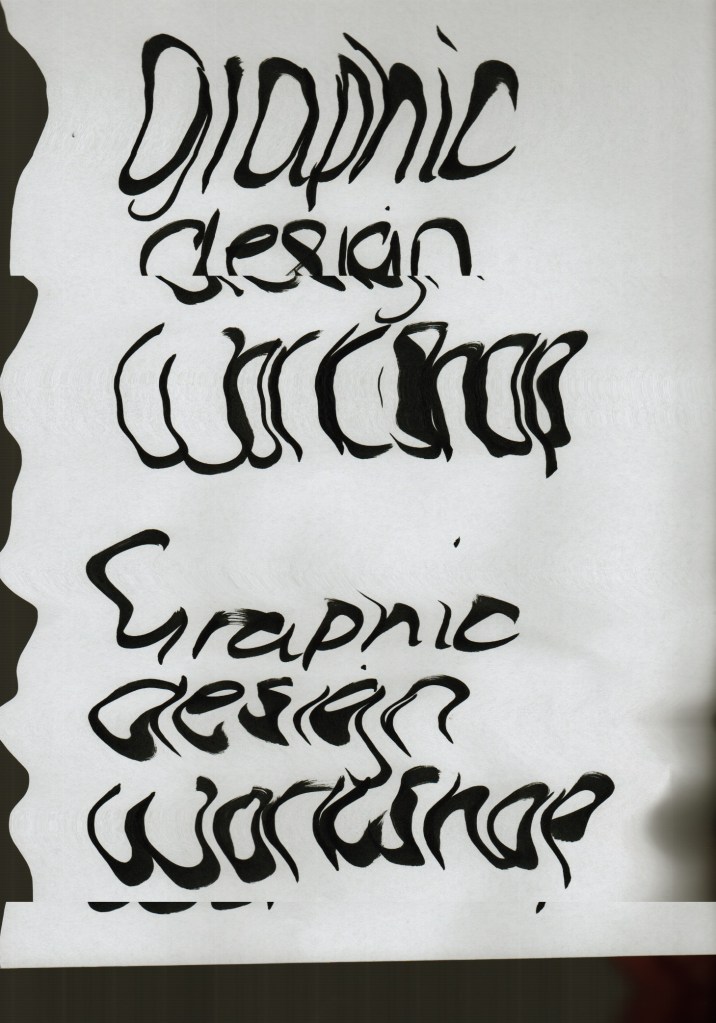 graphic
design
workshop
Graphic
design
workshop